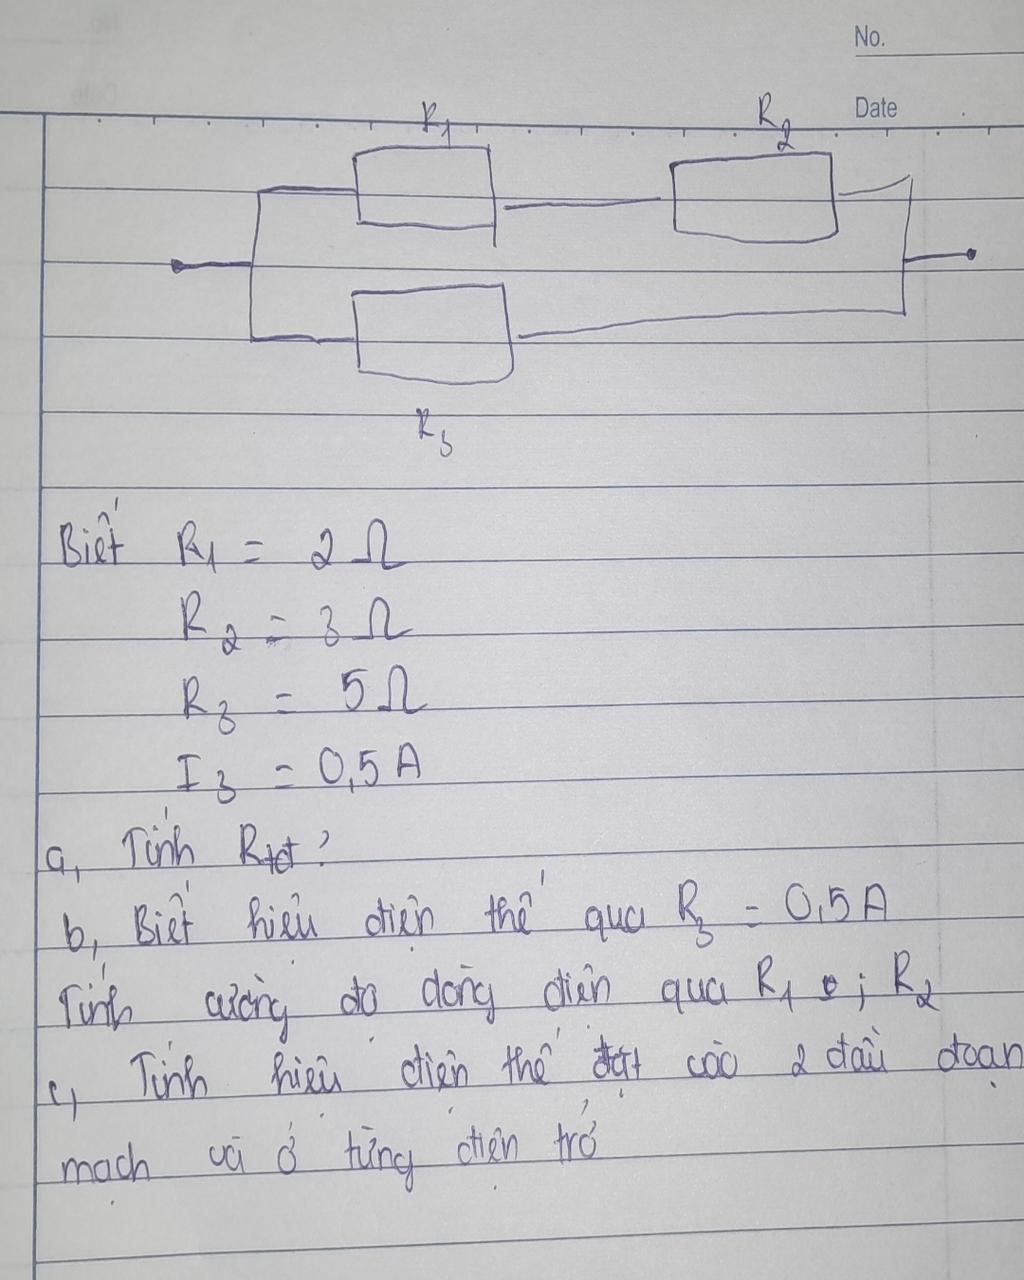 No.
Date
R1
R2
R3
Biết R1 = 2 Ω
R2 = 3 Ω
R3 = 5 Ω
I3 = 0,5 A
a, Tính Rtđ ?
b, Biết hiệu điện thế qua R3 = 0,5 A
Tính cường độ dòng điện qua R1 ; R2
c, Tính hiệu điện thế đặt vào 2 đầu đoạn
mạch và ở từng điện trở